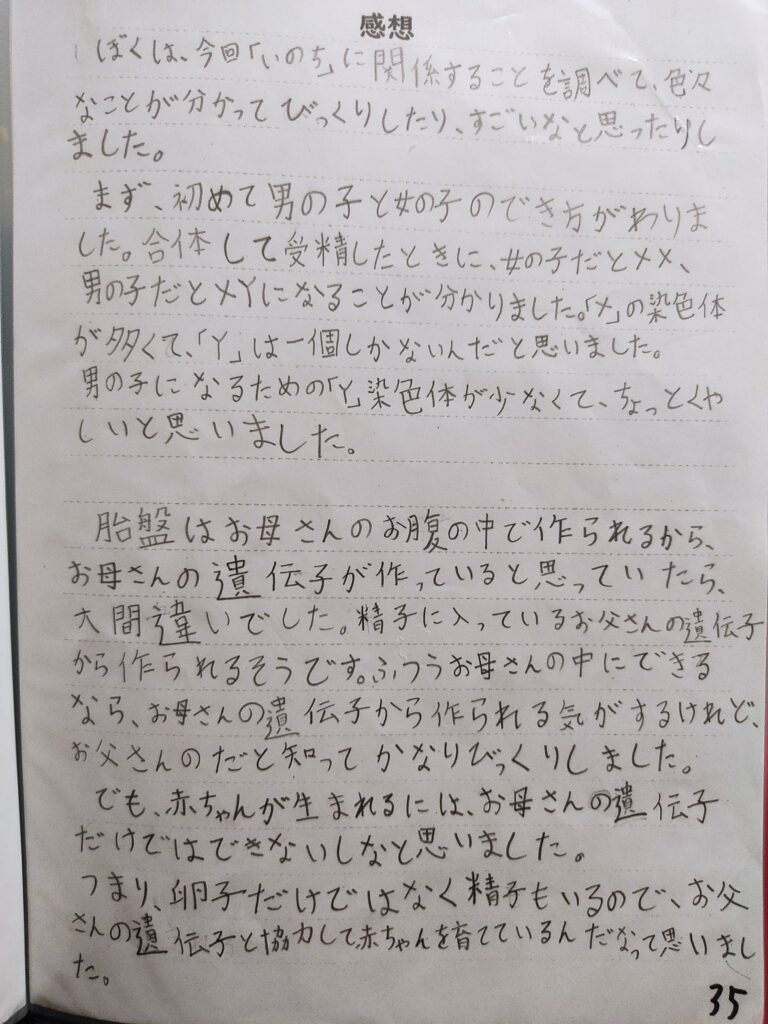 感想
ぼくは、今回「いのち」に関係することを調べて、色々
なことが分かってびっくりしたり、すごいなと思ったりし
ました。
まず、初めて男の子と女の子のでき方がわりま
した。合体して受精したときに、女の子だとXX、
男の子だとXYになることが分かりました。「X」の染色体
が多くて、「Y」は一個しかないんだと思いました。
男の子になるための「Y」染色体が少なくて、ちょっとくや
しいと思いました。
胎盤はお母さんのお腹の中で作られるから、
お母さんの遺伝子が作っていると思っていたら、
大間違いでした。精子に入っているお父さんの遺伝子
から作られるそうです。ふつうお母さんの中にできる
なら、お母さんの遺伝子から作られる気がするけれど、
お父さんのだと知ってかなりびっくりしました。
でも、赤ちゃんが生まれるには、お母さんの遺伝子
だけではできないしなと思いました。
つまり、卵子だけではなく精子もいるので、お父
さんの遺伝子と協力して赤ちゃんを育てているんだなって思いまし
た。
35